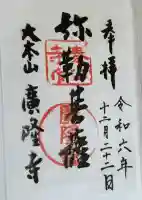 奉拝
令和六年
十二月二十二日
弥勒菩薩
大本山 廣隆寺